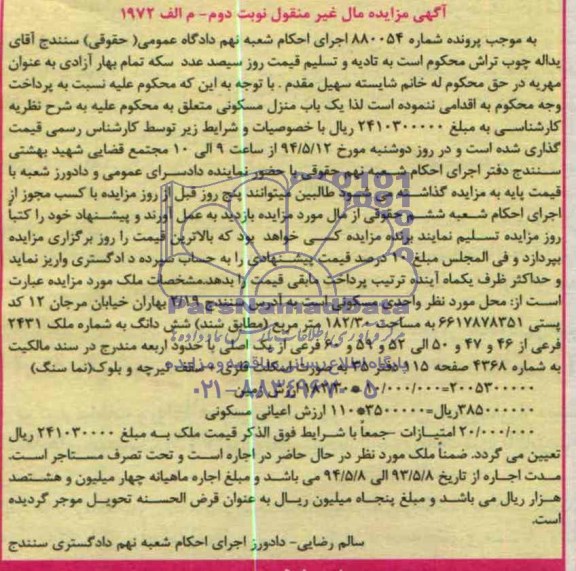 آگهی مزایده مال غیر منقول نوبت دوم- م الف ۱۹۷۲
به موجب پرونده شماره ۸۸۰۰۵۴ اجرای احکام شعبه نهم دادگاه عمومی( حقوقی) سنندج آقای
یداله چوب تراش محکوم است به تادیه و تسلیم قیمت روز سیصد عدد سکه تمام بهار آزادی به عنوان
مهریه در حق محکوم له خانم شایسته سهیل مقدم . با توجه به این که محکوم علیه نسبت به پرداخت
وجه محکوم به اقدامی ننموده است لذا یک باب منزل مسکونی متعلق به محکوم علیه به شرح نظریه
کارشناسی به مبلغ ۲۴۱۰۳۰۰۰۰۰ ریال با خصوصیات و شرایط زیر توسط کارشناس رسمی قیمت
گذاری شده است و در روز دوشنبه مورخ ۹۴/۵/۱۲ از ساعت ۹ الی ۱۰ مجتمع قضایی شهید بهشتی
سنندج دفتر اجرای احکام شعبه نهم حقوقی با حضور نماینده دادسرای عمومی و دادورز شعبه با
قیمت پایه به مزایده گذاشته می شود طالبین میتوانند پنج روز قبل از روز مزایده با کسب مجوز از
اجرای احکام شعبه ششم حقوقی از مال مورد مزایده بازدید به عمل آورند و پیشنهاد خود را کتبا
روز مزایده تسلیم نمایند برنده مزایده کسی خواهد بود که بالاترین قیمت را روز برگزاری مزایده
بپردازد و فی المجلس مبلغ ۱۰ درصد قیمت پیشنهادی را به حساب سپرده دادگستری واریز نماید
و حداکثر ظرف یکماه آینده ترتیب پرداخت مابقی قیمت را بدهد.مشخصات ملک مورد مزایده عبارت
است از: محل مورد نظر واحدی مسکونی است به آدرس سنندج ۴/۱۹ بهاران خیابان مرجان ۱۲ کد
پستی ۶۶۱۷۸۷۸۳۵۱ به مساحت ۱۸۲/۳۰ متر مربع (مطابق سند) شش دانگ به شماره ملک ۲۴۳۱
فرعی از ۴۶ و ۴۷ و ۵۰ الی ۵۲ و ۵۹ و ۶۰ فرعی از یک اصلی با حدود اربعه مندرج در سند مالکیت
به شماره ۴۳۶۸ صفحه ۱۱۵ دفتر ۳۵ به صورت اسکلت فلزی - سقف تیرچه و بلوک(نما سنگ)
۲۰۰۵۳۰۰۰۰۰=۱۰/۰۰۰/۰۰۰* ۱۸۲/۳۰ ارزش زمین
۳۸۵۰۰۰۰۰۰ریال=۳۵۰۰۰۰۰*۱۱۰ ارزش اعیانی مسکونی
۲۰/۰۰۰/۰۰۰ امتیازات -جمعاً با شرایط فوق الذکر قیمت ملک به مبلغ ۲۴۱۰۳۰۰۰۰ ریال
تعیین می گردد. ضمناً ملک مورد نظر در حال حاضر در اجاره است و تحت تصرف مستاجر است.
مدت اجاره از تاریخ ۹۳/۵/۸ الی ۹۴/۵/۸ می باشد و مبلغ اجاره ماهیانه چهار میلیون و هشتصد
هزار ریال می باشد و مبلغ پنجاه میلیون ریال به عنوان قرض الحسنه تحویل موجر گردیده
است.
سالم رضایی- دادورز اجرای احکام شعبه نهم دادگستری سنندج
ParsNamadData
پایگاه اطلاع رسانی مناقصه و مزایده
۰۲۱-۸۸۳۴۹۶۷۰-۵